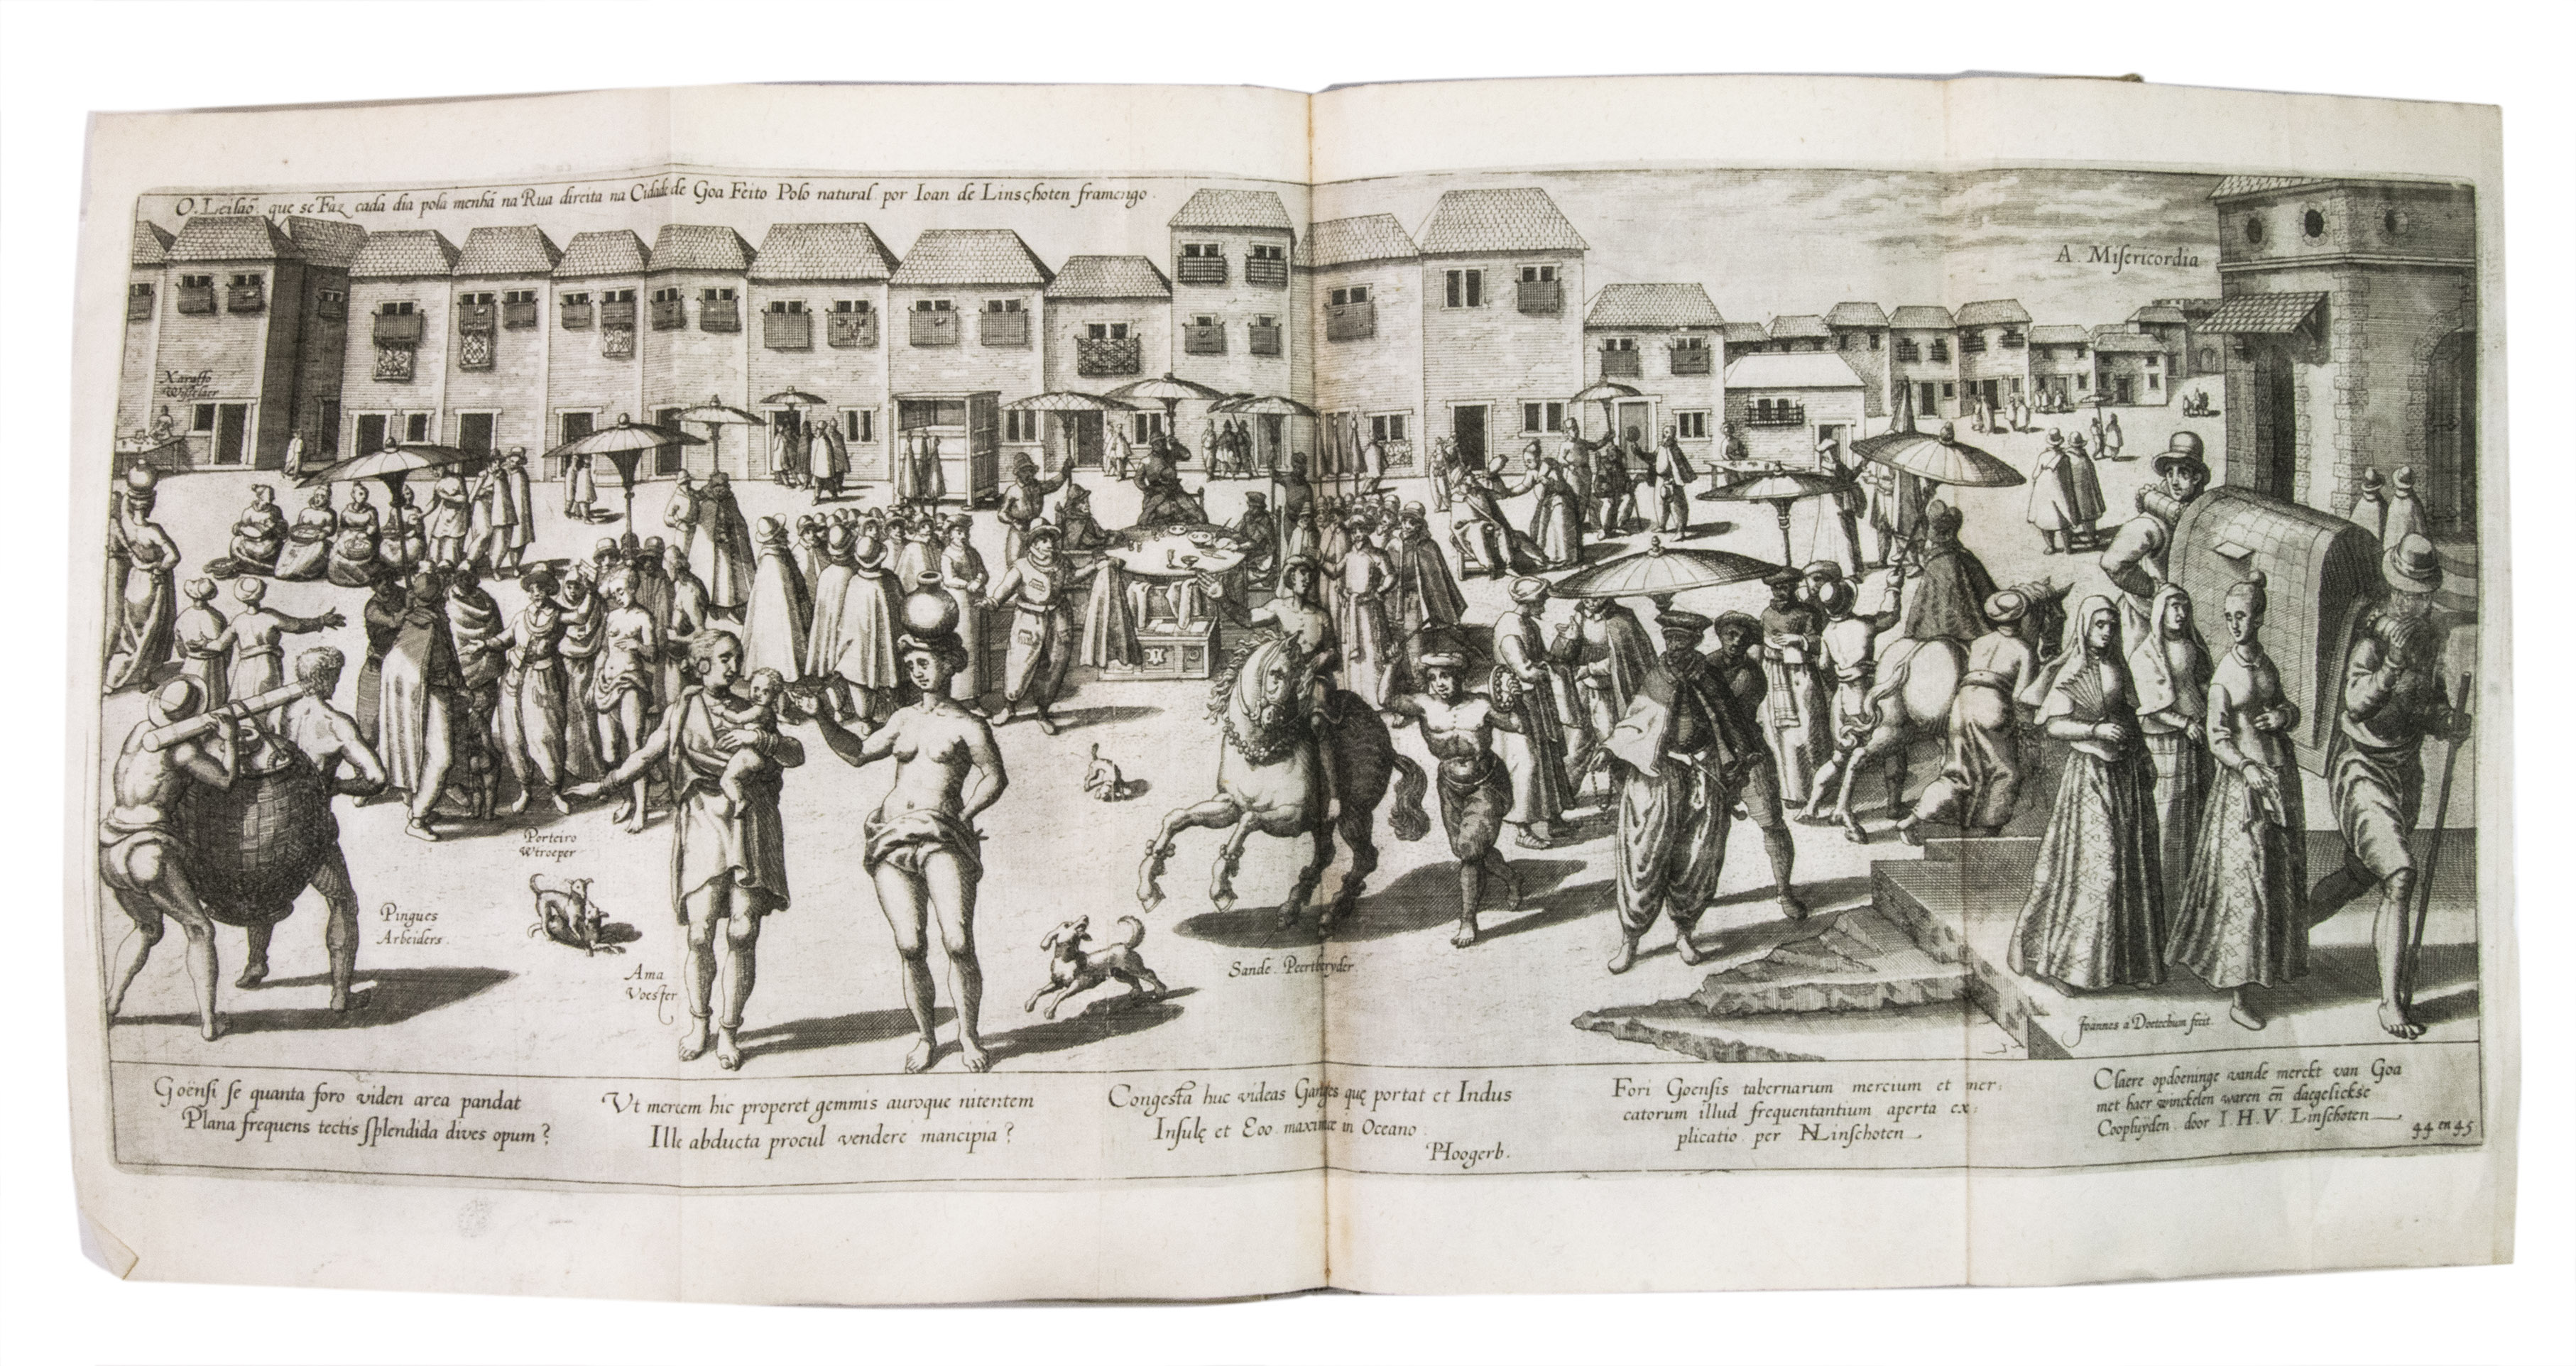 O. Leilaõ que se Faz cada dia pola menhã na Rua direita na Cidade de Goa Feito Polo natural por Ioan de Linschoten framengo.
A. Miſericordia
Xaraffo
Wiſſelaer
Porteiro
Wtroeper
Pingues
Arbeiders.
Ama
Voeſter
Sande. Peertberyder
Joannes à Doetechum fecit.
Goënſi ſe quanta foro viden area pandat
Plana frequens tectis ſplendida dives opum?
Vt mercem hic properet gemmis auroque nitentem
Ille abducta procul vendere mancipia?
Congesta huc videas Ganges quę portat et Indus
Inſulę et Eoo maximæ in Oceano.
PHoogerb.
Fori Goenſis tabernarum mercium et mer:
catorum illud frequentantium aperta ex:
plicatio per Linſchoten
Claere opdoeninge vande merckt van Goa
met haer winckelen waren eñ daegelickse
Coopluyden door I.H.V. Linſchoten
44 en 45